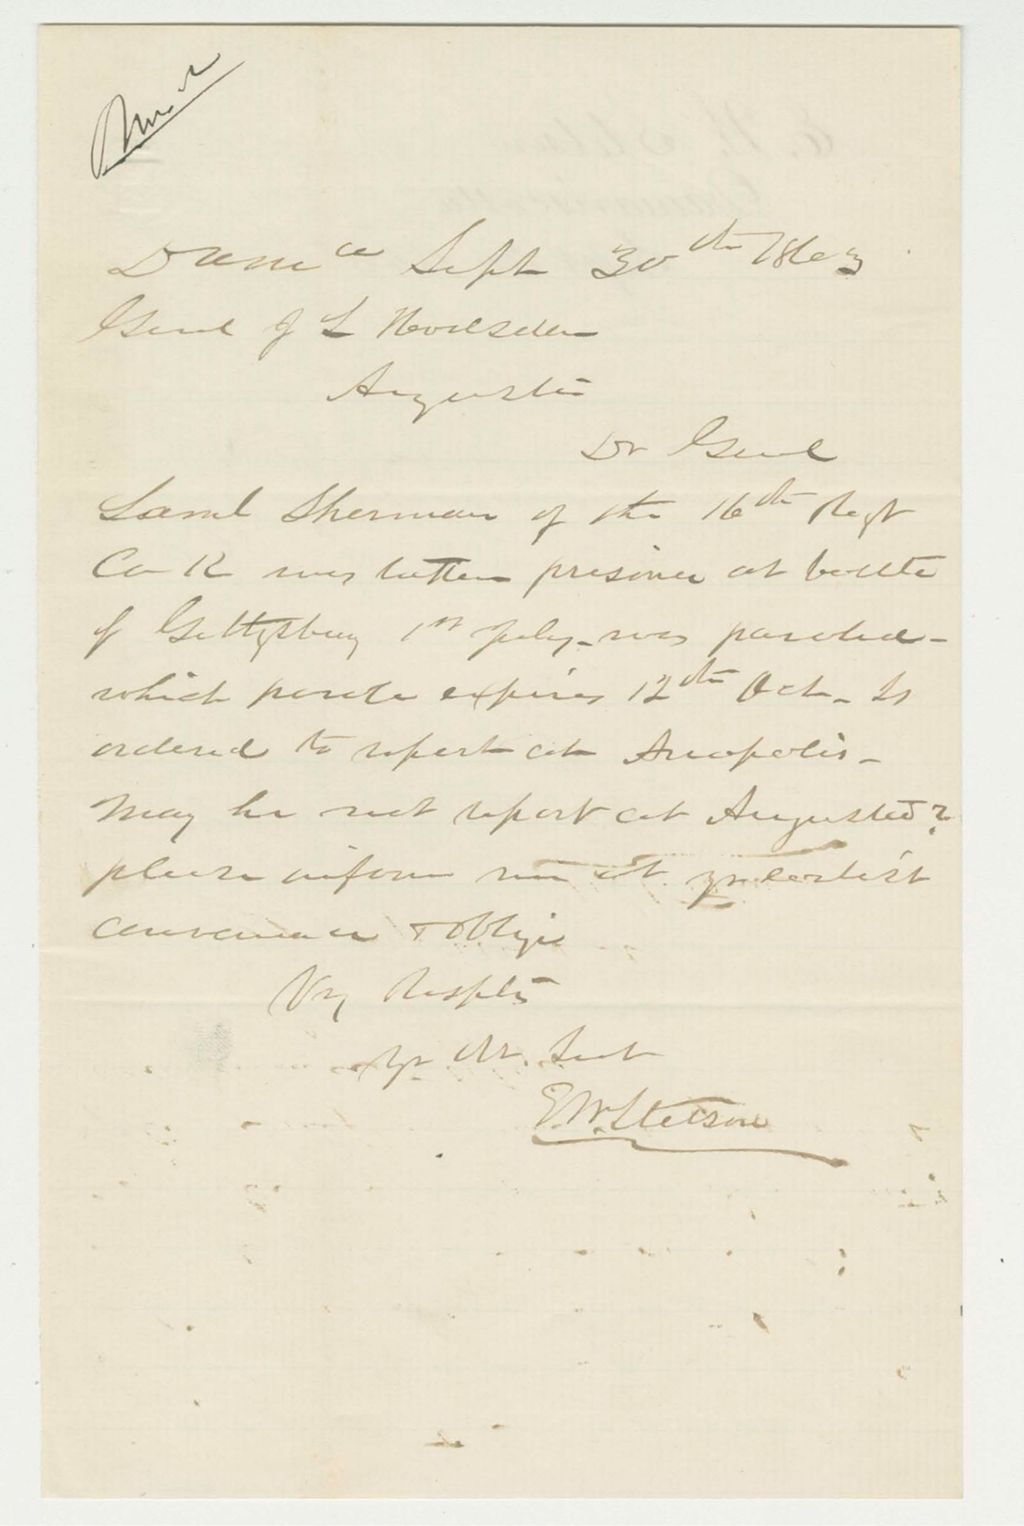 Ansd
Dama Sept 30th 1863
Genl J L Hodsdon
Augusta
Dr Genl
Saml Sherman of the 16th Regt
Co K was taken prisoner at battle
of Gettysburg 1st July - was paroled -
which parole expires 12th Oct - Is
ordered to report at Anapolis -
May he not report at Augusta?
please inform me at yr earliest
convenience & oblige
Vry Respfly
Yr Ob. Sevt
E. W. Stetson